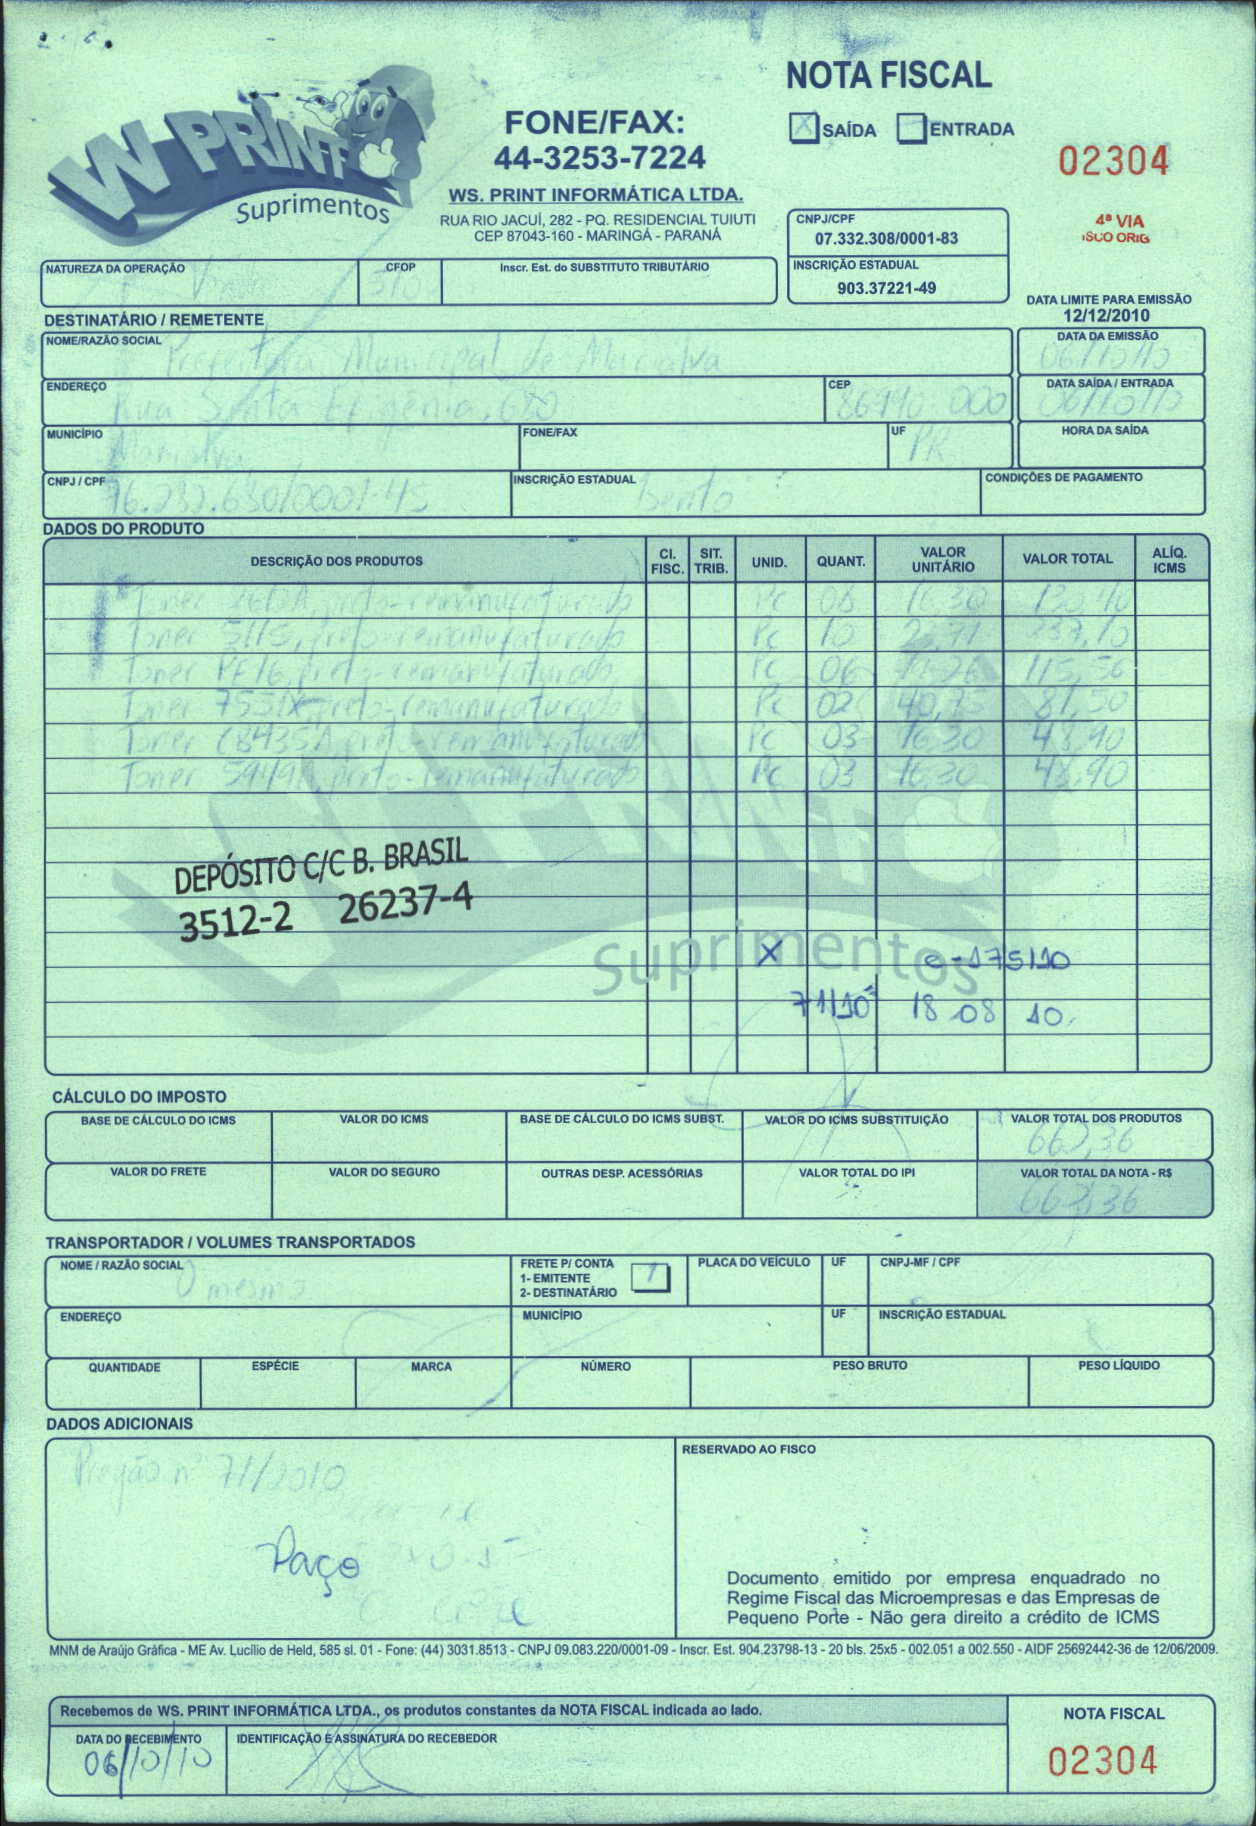 W PRINT
Suprimentos
FONE/FAX:
44-3253-7224
WS. PRINT INFORMÁTICA LTDA.
RUA RIO JACUÍ, 282 - PQ. RESIDENCIAL TUIUTI
CEP 87043-160 - MARINGÁ - PARANÁ
NOTA FISCAL
X SAÍDA ENTRADA
02304
4ª VIA
CNPJ/CPF
07.332.308/0001-83
INSCRIÇÃO ESTADUAL
903.37221-49
DATA LIMITE PARA EMISSÃO
12/12/2010
NATUREZA DA OPERAÇÃO Venda
CFOP
Inscr. Est. do SUBSTITUTO TRIBUTÁRIO
DESTINATÁRIO / REMETENTE
NOME/RAZÃO SOCIAL Prefeitura Municipal de Marialva
DATA DA EMISSÃO 06/10/10
ENDEREÇO Rua Santa Efigenia, 680
CEP 86990-000
DATA SAÍDA / ENTRADA 06/10/10
MUNICÍPIO Marialva
FONE/FAX
UF PR
HORA DA SAÍDA
CNPJ / CPF 76.282.680/0001-45
INSCRIÇÃO ESTADUAL Isento
CONDIÇÕES DE PAGAMENTO
DADOS DO PRODUTO
DESCRIÇÃO DOS PRODUTOS CI. FISC. SIT. TRIB. UNID. QUANT. VALOR UNITÁRIO VALOR TOTAL ALÍQ. ICMS
Toner preto-remanufaturado Pc 16,30 130,40
Toner 5115, preto-remanufaturado Pc 10 23,71 237,10
Toner PE16, preto-remanufaturado Pc 06 19,26 115,56
Toner 7551X preto-remanufaturado Pc 02 40,75 81,50
Toner CB435A, preto-remanufaturado Pc 03 16,30 48,90
Toner 5949A, preto-remanufaturado Pc 03 16,30 48,90
DEPÓSITO C/C B. BRASIL
3512-2 26237-4
Suprimentos
X e-175/10
71/10 18 08 10.
CÁLCULO DO IMPOSTO
BASE DE CÁLCULO DO ICMS
VALOR DO ICMS
BASE DE CÁLCULO DO ICMS SUBST.
VALOR DO ICMS SUBSTITUIÇÃO
VALOR TOTAL DOS PRODUTOS 662,36
VALOR DO FRETE
VALOR DO SEGURO
OUTRAS DESP. ACESSÓRIAS
VALOR TOTAL DO IPI
VALOR TOTAL DA NOTA - R$ 662,36
TRANSPORTADOR / VOLUMES TRANSPORTADOS
NOME / RAZÃO SOCIAL O mesmo
FRETE P/ CONTA
1- EMITENTE
2- DESTINATÁRIO
1
PLACA DO VEÍCULO
UF
CNPJ-MF / CPF
ENDEREÇO
MUNICÍPIO
UF
INSCRIÇÃO ESTADUAL
QUANTIDADE
ESPÉCIE
MARCA
NÚMERO
PESO BRUTO
PESO LÍQUIDO
DADOS ADICIONAIS
Pregão nº 71/2010
Paço
RESERVADO AO FISCO
Documento emitido por empresa enquadrado no
Regime Fiscal das Microempresas e das Empresas de
Pequeno Porte - Não gera direito a crédito de ICMS
MNM de Araújo Gráfica - ME Av. Lucílio de Held, 585 sl. 01 - Fone: (44) 3031.8513 - CNPJ 09.083.220/0001-09 - Inscr. Est. 904.23798-13 - 20 bls. 25x5 - 002.051 a 002.550 - AIDF 25692442-36 de 12/06/2009.
Recebemos de WS. PRINT INFORMÁTICA LTDA., os produtos constantes da NOTA FISCAL indicada ao lado.
DATA DO RECEBIMENTO
06/10/10
IDENTIFICAÇÃO E ASSINATURA DO RECEBEDOR
NOTA FISCAL
02304